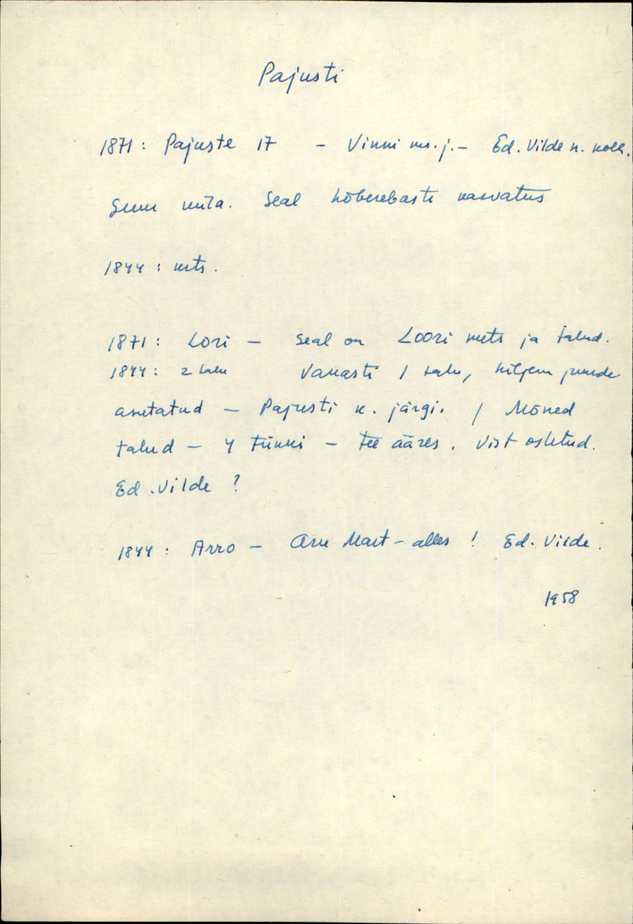 Pajusti
1871: Pajuste 17 - Vinni ms.j. - Ed. Vilde n. kolh.
Suur küla. Seal hõberebaste kasvatus
1844: mts.
1871: Lori - Seal on Loori mets ja talud.
1844: 2 talu Vanasti 1 talu, hiljem juurde
asetatud - Pajusti k. järgi. / Mõned
talud - 4 tükki - tee ääres. Vist ostetud.
Ed. Vilde ?
1844: Arro - Aru Mart - alles ! Ed. Vilde.
1958